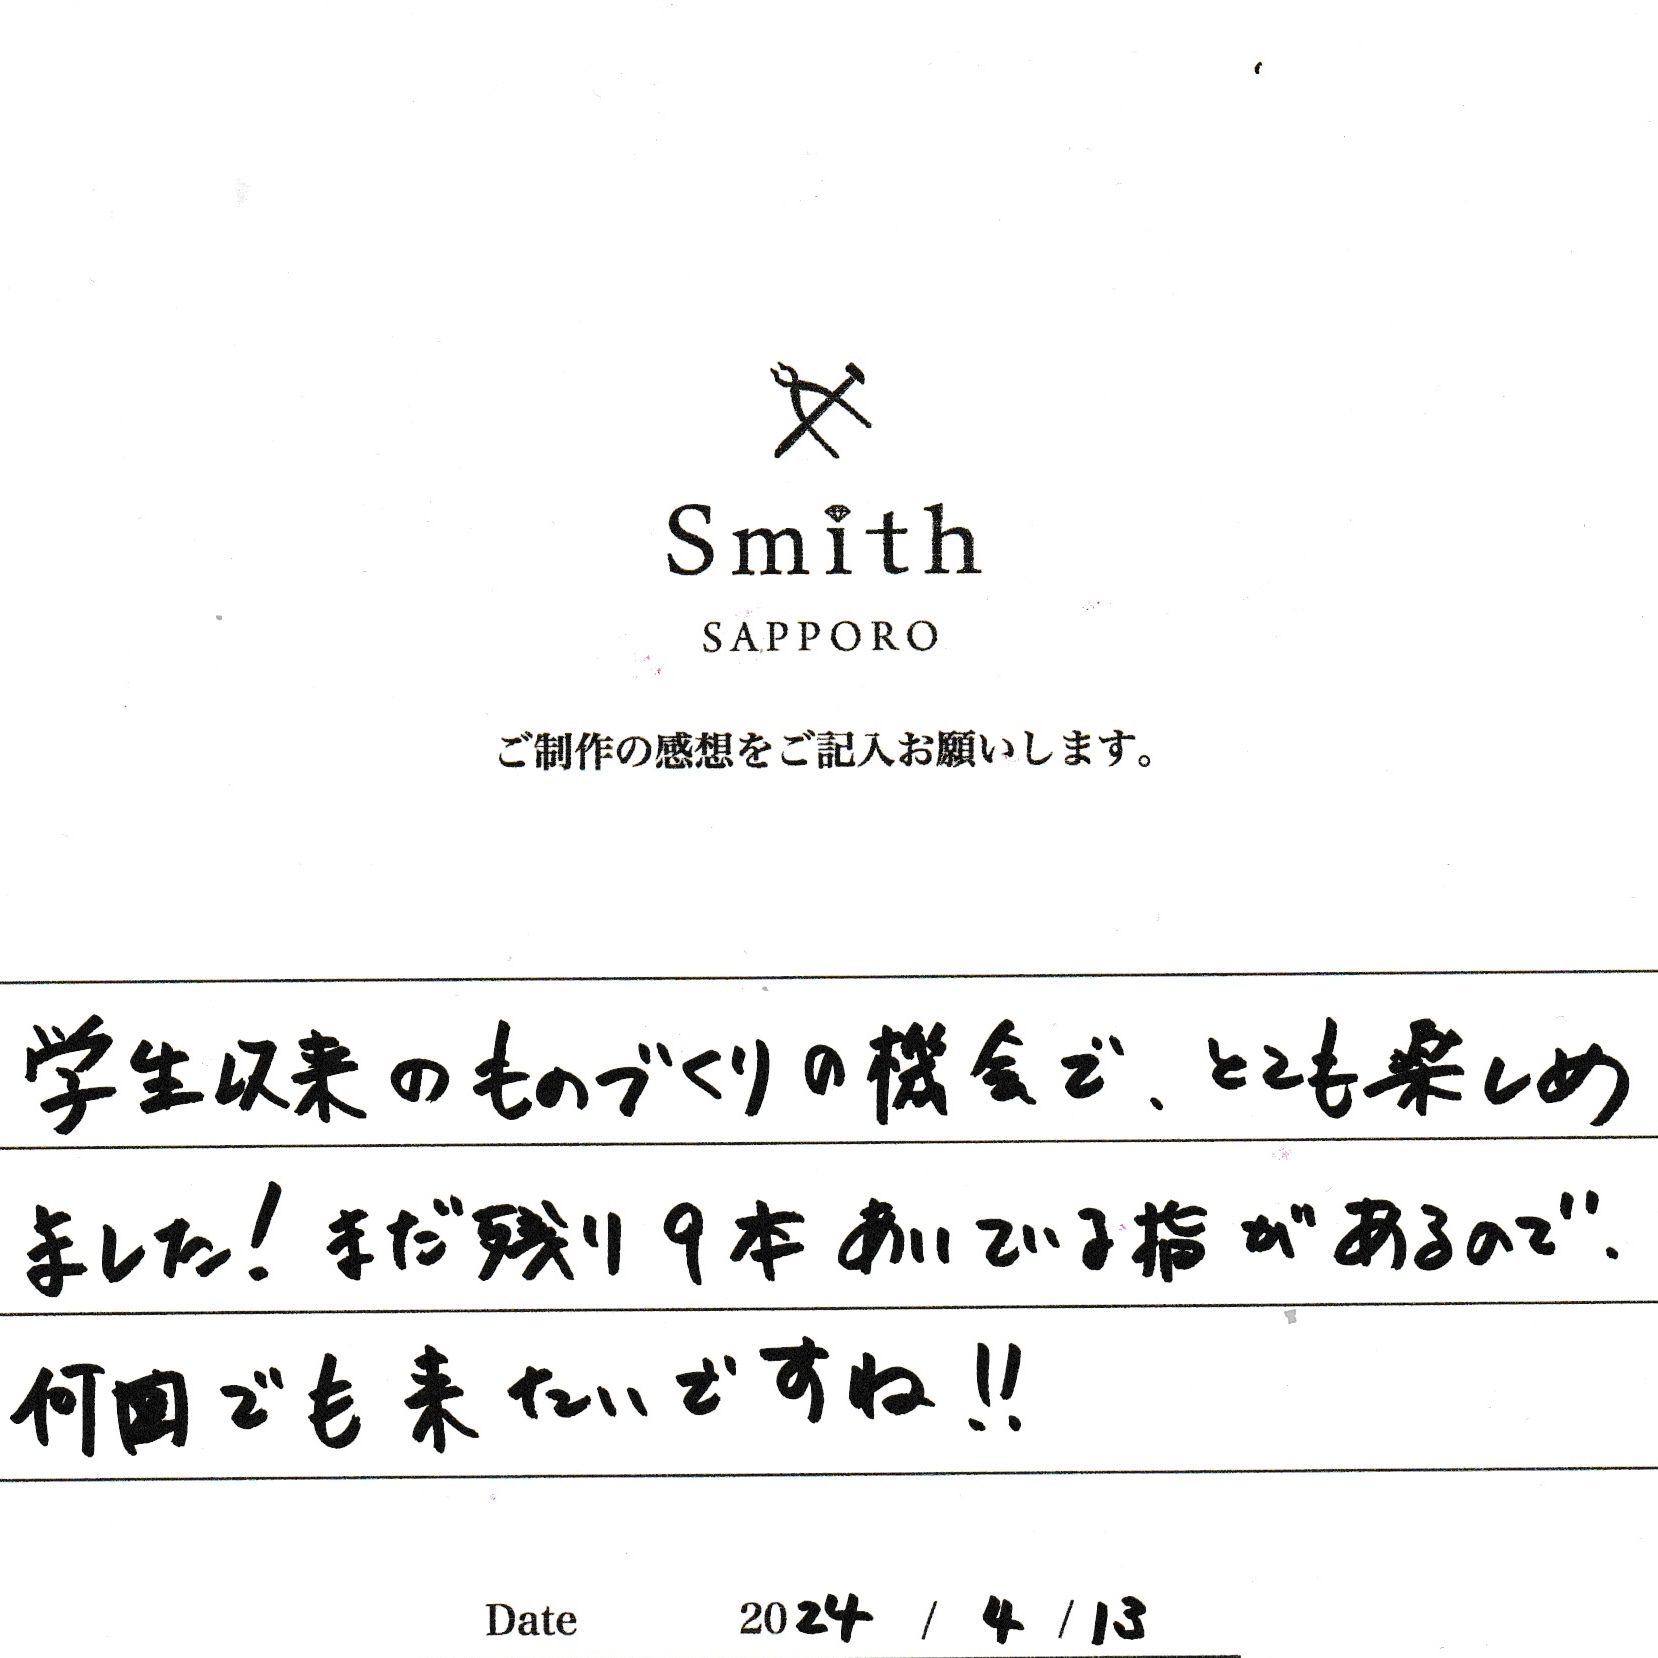 Smith
SAPPORO
ご制作の感想をご記入お願いします。
学生以来のものづくりの機会で、とても楽しめ
ました!まだ残り9本あいている指があるので、
何回でも来たいですね!!
Date 2024 / 4 / 13